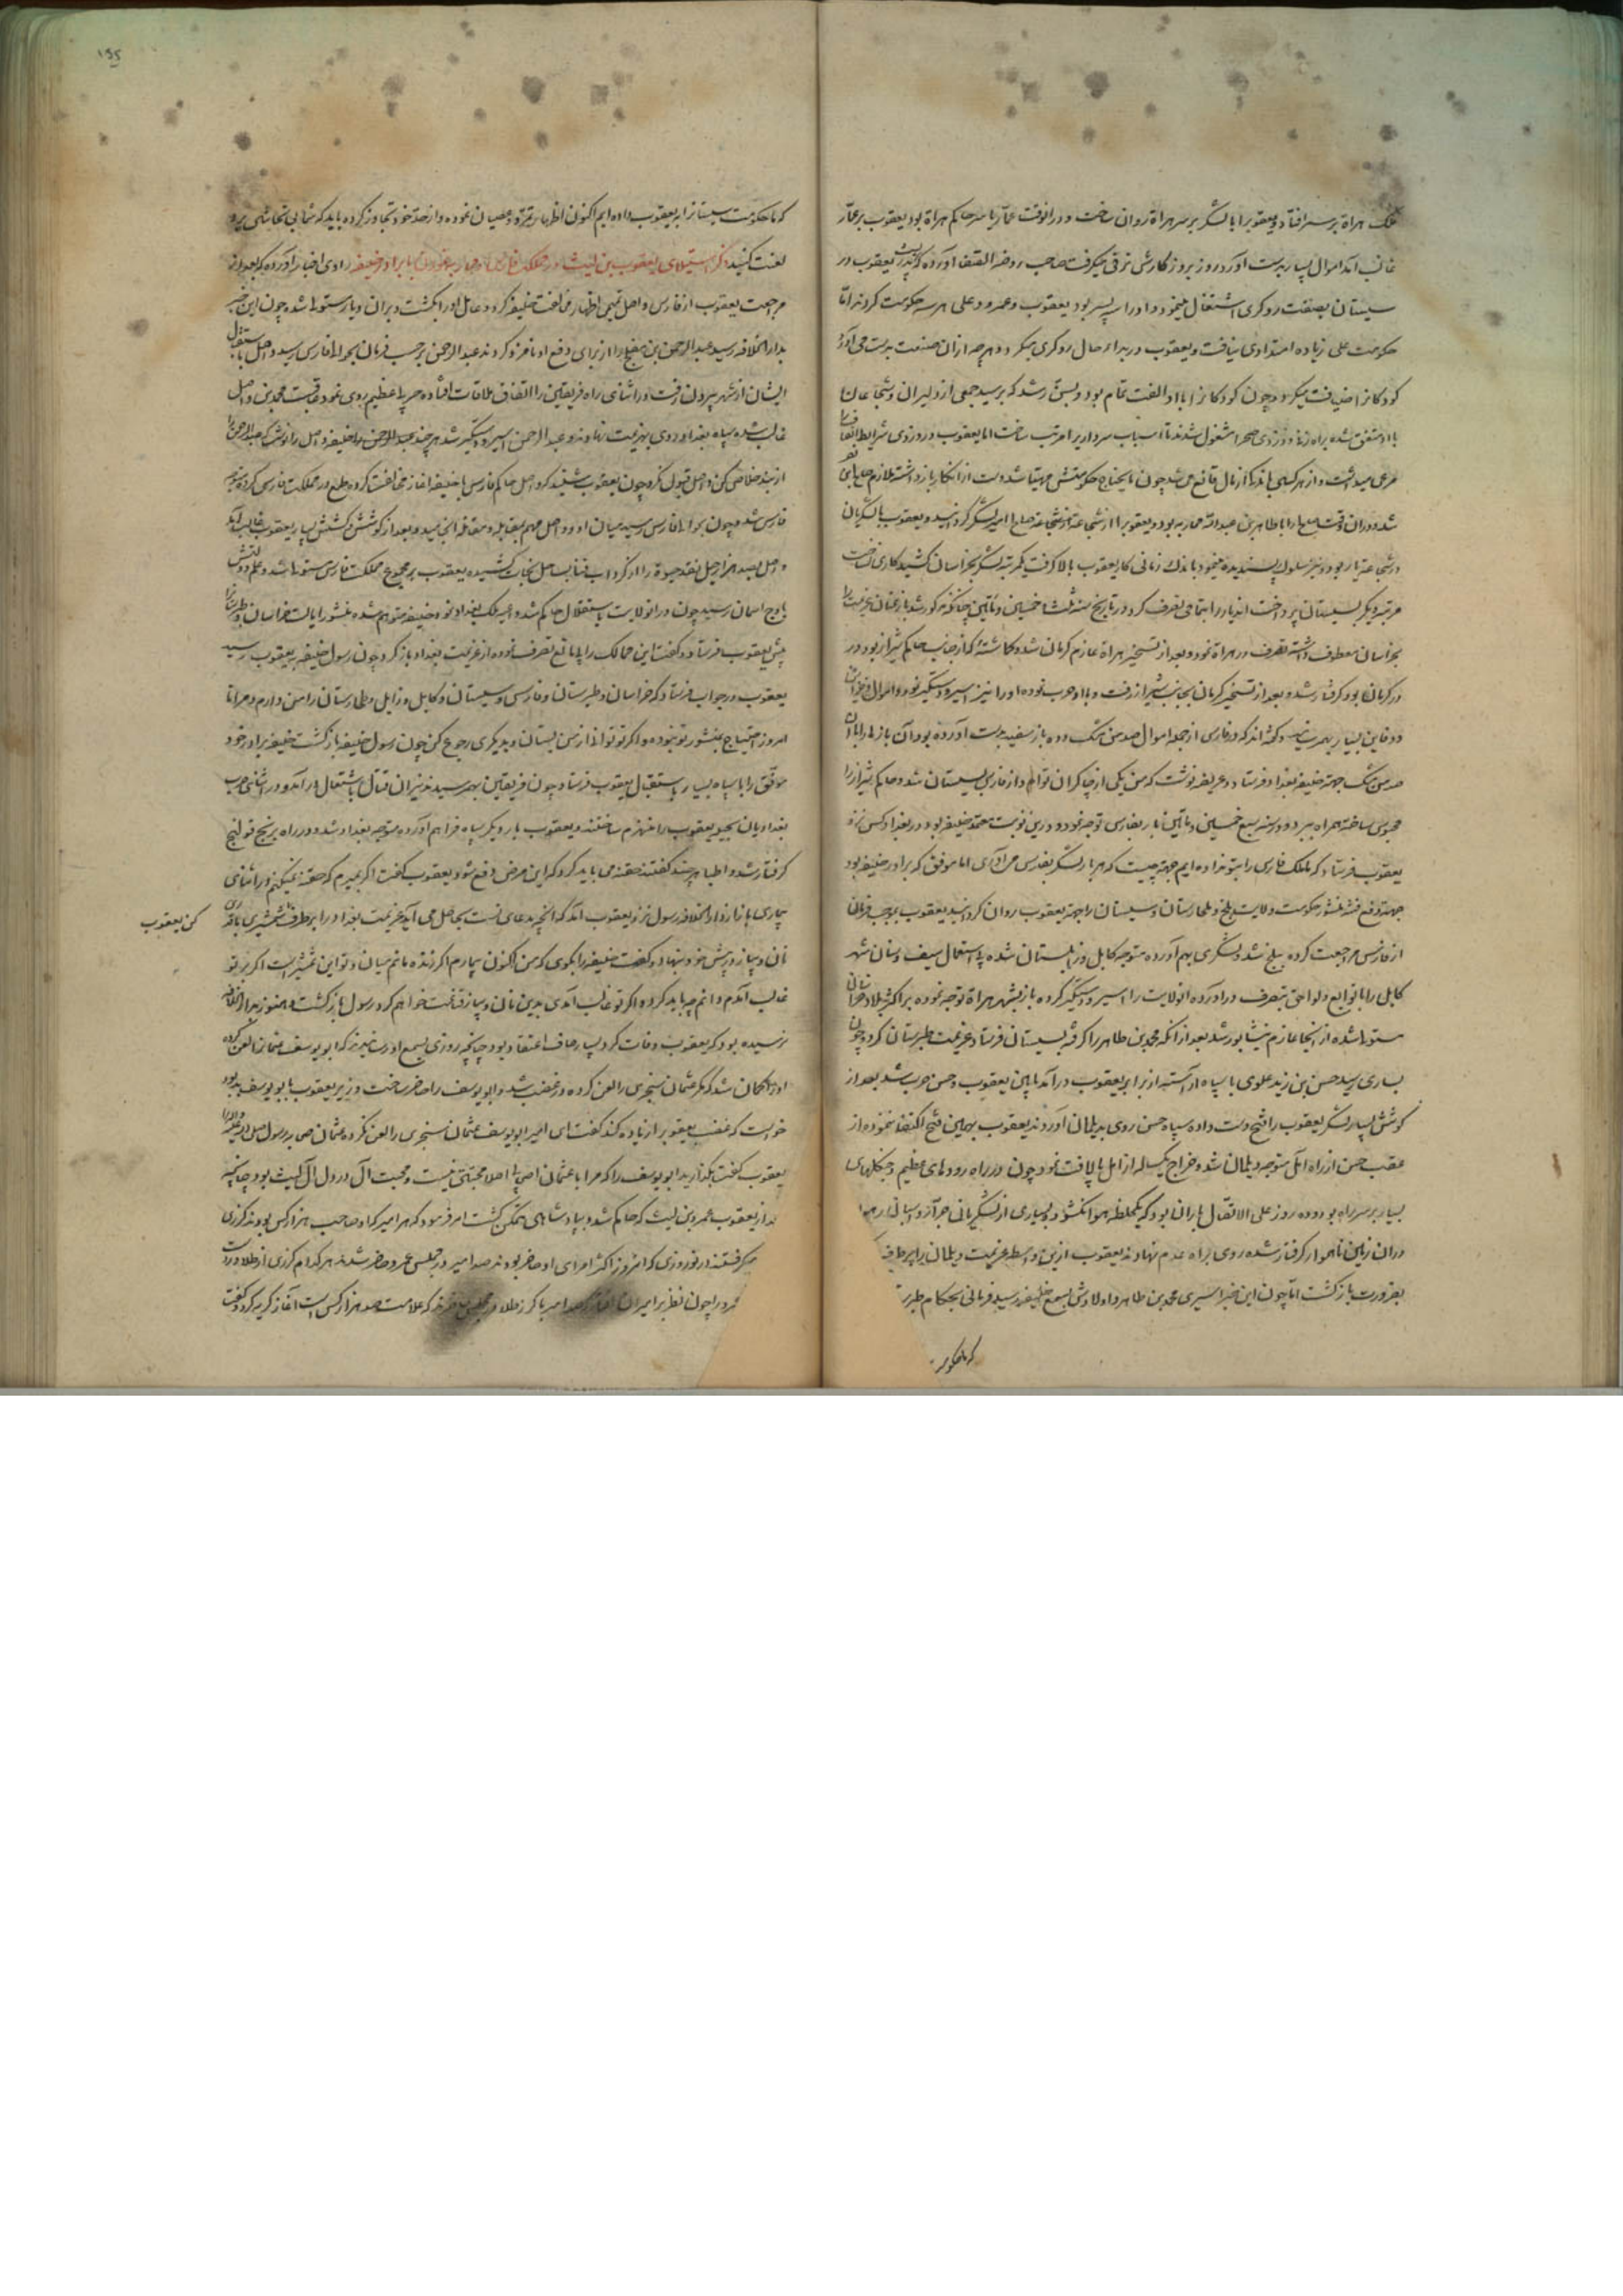 ملک هراة بر سر افتاد و یعقوب را با لشکر بر سر هراة روان ساخت و درانوقت عمار یاسر حاکم هراة بود یعقوب بر عمار
غالب آمد اموال بسیار بدست آورد و روز بروز کارش ترقی میکرفت صاحب روضة الصفا آورده که لیث پدر یعقوب در
سیستان بصفت روکری اشتغال مینمود و او را سه پسر بود یعقوب و عمرو و علی هر سه حکومت کردند اما
حکومت علی زیاده امتدادی نیافت و یعقوب در بداء حال روکری میکرد و هر چه از ان صنعت بدست می آورد
کودکانرا ضیافت میکرد و چون کودکانرا با او الفت تمام بود و بسن رشد که برسید جمعی از دلیران و شجاعان
با او متفق شده براه زنی و دزدی صحرا مشغول شدند تا اسباب سرداریرا مرتب ساخت اما یعقوب در دزدی شرایط انصاف
مرعی میداشت و از هر کسی باندک از مال قانع می شد چون مایحتاج حکومتش مهیا شد دست از انکار باز داشته ملازم صالح بن نصر
شد و دران وقت صالح را با طاهر بن عبدالله محاربه بود و یعقوب را از شجاعت صالح امیر لشکر کردانید و یعقوب با لشکریان
مرتبه دیکر بسیستان پرداخت اندیار را بتمامی تصرف کرد در تاریخ سنه ثلث و خمسین و مأتین چنانکه مذکور شد باز عنان عزیمت را
بخراسان معطوف داشته تصرف در هراة نمود و بعد از تسخیر هراة عازم کرمان شد و کماشتهٔ که از جانب حاکم شیراز بود در
در کرمان بود کرفتار شد و بعد از تسخیر کرمان بجانب شیراز رفت و با او حرب نموده او را نیز اسیر و دستکیر نمود و اموال و خزاین
و دفاین بسیار بهم رسانید و کفته اند که در فارس از جمله اموال صد من مشک و ده باز سفید بدست آورده بود آن باز ها را با
صد من مشک جهة خلیفه بغداد فرستاد و عریضه نوشت که من یکی از چاکران توام و از فارس بسیستان شد و حاکم شیراز را
محبوس ساخته همراه ببرد و در سنه سبع خمسین و مأتین باز بفارس توجه نمود و درین نوبت معتمد خلیفه بود در بغداد کس نزد
یعقوب فرستاد که ما ملک فارس را بتو نداده ایم جهة چیست که هر بار لشکر بفارس می آوری اما موفق که برادر خلیفه بود
جهة دفع فتنه منشور حکومت ولایت بلخ و طخارستان و سیستان را جهة یعقوب روان کردانید یعقوب بموجب فرمان
از فارس مراجعت کرده ببلخ شد و لشکری بهم آورده متوجه کابل و زابلستان شده باستعمال سیف و سنان شهر
کابل را با توابع و لواحق بتصرف در اورده والی انولایت را اسیر و دستکیر کرده باز بشهر هراة توجه نموده بر اکثر بلاد خراسان
مستولی شده از انجا عازم نیشابور شد بعد از انکه محمد بن طاهر را کرفته بسیستان فرستاد عزیمت طبرستان کرد و چون
بساری رسید حسن بن زید علوی با سپاه آراسته از برابر یعقوب در آمد مابین یعقوب و حسن حرب شد بعد از
کوشش بسیار لشکر یعقوب را فتح دست داده سپاه حسن روی بدیلمان آوردند یعقوب بهمین فتح اکتفا ننموده از
عقب حسن از راه آمل متوجه دیلمان شد و خراج یکساله از اهل بالافت نمود چون در راه رودهای عظیم و جنکلهای
بسیار بر سر راه بود و ده روز علی الاتصال باران بود که یکلحظه هوا نکشود و بسیاری از لشکریانی
دران زمین ناهموار کرفتار شده روی براه عدم نهادند یعقوب ازین واسطه عزیمت دیلمان را بر طرف
بضرورت باز کشت اما چون این خبر اسیری محمد بن طاهر و اولادش بسمع خلیفه رسید فرمانی بحکام طبر
که ما حکومت
١٩٥
که ما حکومت سیستانرا بیعقوب داده ایم اکنون اظهار تمرد و عصیان نموده و از حد خود تجاوز کرده باید که شما بی تحاشی برو
لعنت کنید ذکر استیلای یعقوب بن لیث در مملکت فارس و محاربه نمودن با برادر خلیفه راوی اخبار آورده که بعد از
مراجعت یعقوب از فارس واصل تمیمی اظهار مخالفت خلیفه کرد و عامل او را بکشت و بران دیار مستولی شده چون این خبر
بدار الخلافه رسید عبدالرحمن بن مفلح را از برای دفع او نامزد کردند عبدالرحمن بر حسب فرمان بحوالی فارس رسید واصل باستقبال
ایشان از شهر بیرون رفت و در اثنای راه فریقین را اتفاق ملاقات افتاده حربی عظیم روی نمود عاقبت محمد بن واصل
غالب شده سپاه بغداد روی بهزیمت نهادند و عبدالرحمن اسیر و دستکیر شد هر چند عبدالرحمن
از بند خلاص کن واصل قبول نکرد چون یعقوب شنید که واصل حاکم فارس با خلیفه اغاز مخالفت کرده طمع در مملکت فارس کرده متوجه
فارس شد و چون بحوالی فارس رسید میان او و واصل مهم بمقابله و مقاتله انجامید و بعد از کوشش و کشش بسیار یعقوب غالب آمد
باوج اسمان رسید چون در انولایت باستقلال حاکم شد داعیه ملک بغداد نمود خلیفه متوهم شده منشور ایالت خراسان و طبرستان را
پیش یعقوب فرستاد و کفت این ممالک را بلا مانع تصرف نموده از عزیمت بغداد باز کرد چون رسول خلیفه بیعقوب رسید
یعقوب در جواب فرستاد که خراسان و طبرستان و فارس و سیستان و کابل و زابل و طخارستان را من دارم و مرا تا
امروز احتیاج بمنشور تو نبوده و اکر تو توانی از من بستان و بدیکری رجوع کن چون رسول خلیفه باز کشت خلیفه برادر خود
موفق را با سپاه بسیار باستقبال یعقوب فرستاد چون فریقین بهم رسیدند نیران قتال باشتعال در آمد و در اثنای حرب
بغدادیان یعقوب را منهزم ساختند و یعقوب بار دیکر سپاه فراهم آورده متوجه بغداد شد و در راه برنج قولنج
کرفتار شد و اطبا هر چند کفتند حقنه می باید کرد که این مرض دفع شود یعقوب کفت اکر بمیرم که حقنه نمیکنم و در اثنای
بیماری باز از دار الخلافه رسول نزد یعقوب آمد که انچه مدعای تست بحاصل می آید عزیمت بغداد را بر طرف
کن یعقوب
نان و پیاز در پیش خود نهاد و کفت خلیفه را بکوی که من اکنون بیمارم اکر زنده مانم میان من و تو این شمشیر است اکر بر تو
غالب آمدم دانم چه باید کرد و اکر تو غالب آمدی بدین نان و پیاز قناعت خواهم کرد رسول باز کشت و هنوز بدار الخلافه
نرسیده بود که یعقوب وفات کرد بسیار صاف اعتقاد بود چنانچه روزی بسمع او رسانیدند که ابو یوسف عثمانرا لعن کرده
او را کمان شد که مکر عثمان سنجری را لعن کرده در غضب شد و ابو یوسف را حاضر ساخت وزیر یعقوب با ابو یوسف بد بود
خواست که غضب یعقوب را زیاده کند کفت ای امیر ابو یوسف عثمان سنجری را لعن نکرده عثمان صاحب رسول
یعقوب کفت بکذارید ابو یوسف را که مرا با عثمان اصحاب اصلا محبتی نیست و محبت آل در دل آل لیث بود چنانچه
بعد از یعقوب عمرو بن لیث که حاکم شد و بپادشاهی متمکن کشت امر فرمود که هر امیر که او صاحب هزار کس بود
میکرفتند در نوروزی که انروز اکثر امرای او حاضر بودند صد امیر در مجلس عمرو حاضر شدند هر کدام کرزی از طلا در دست
عمرو را چون نظر بر امیران افتاد که صد امیر با کرز طلا در مجلس که علامت صد هزار کس است آغاز کریه کرد و کفت